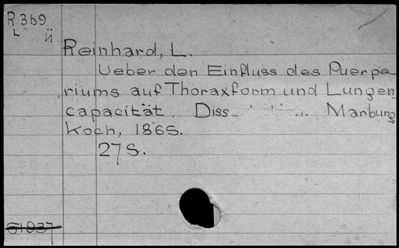 R 369
L
ü
Reinhard, L.
Ueber den Einfluss des Puerpe
riums auf Thoraxform und Lungen
capacität. Diss. Marburg
Koch, 1865.
27 S.
51037